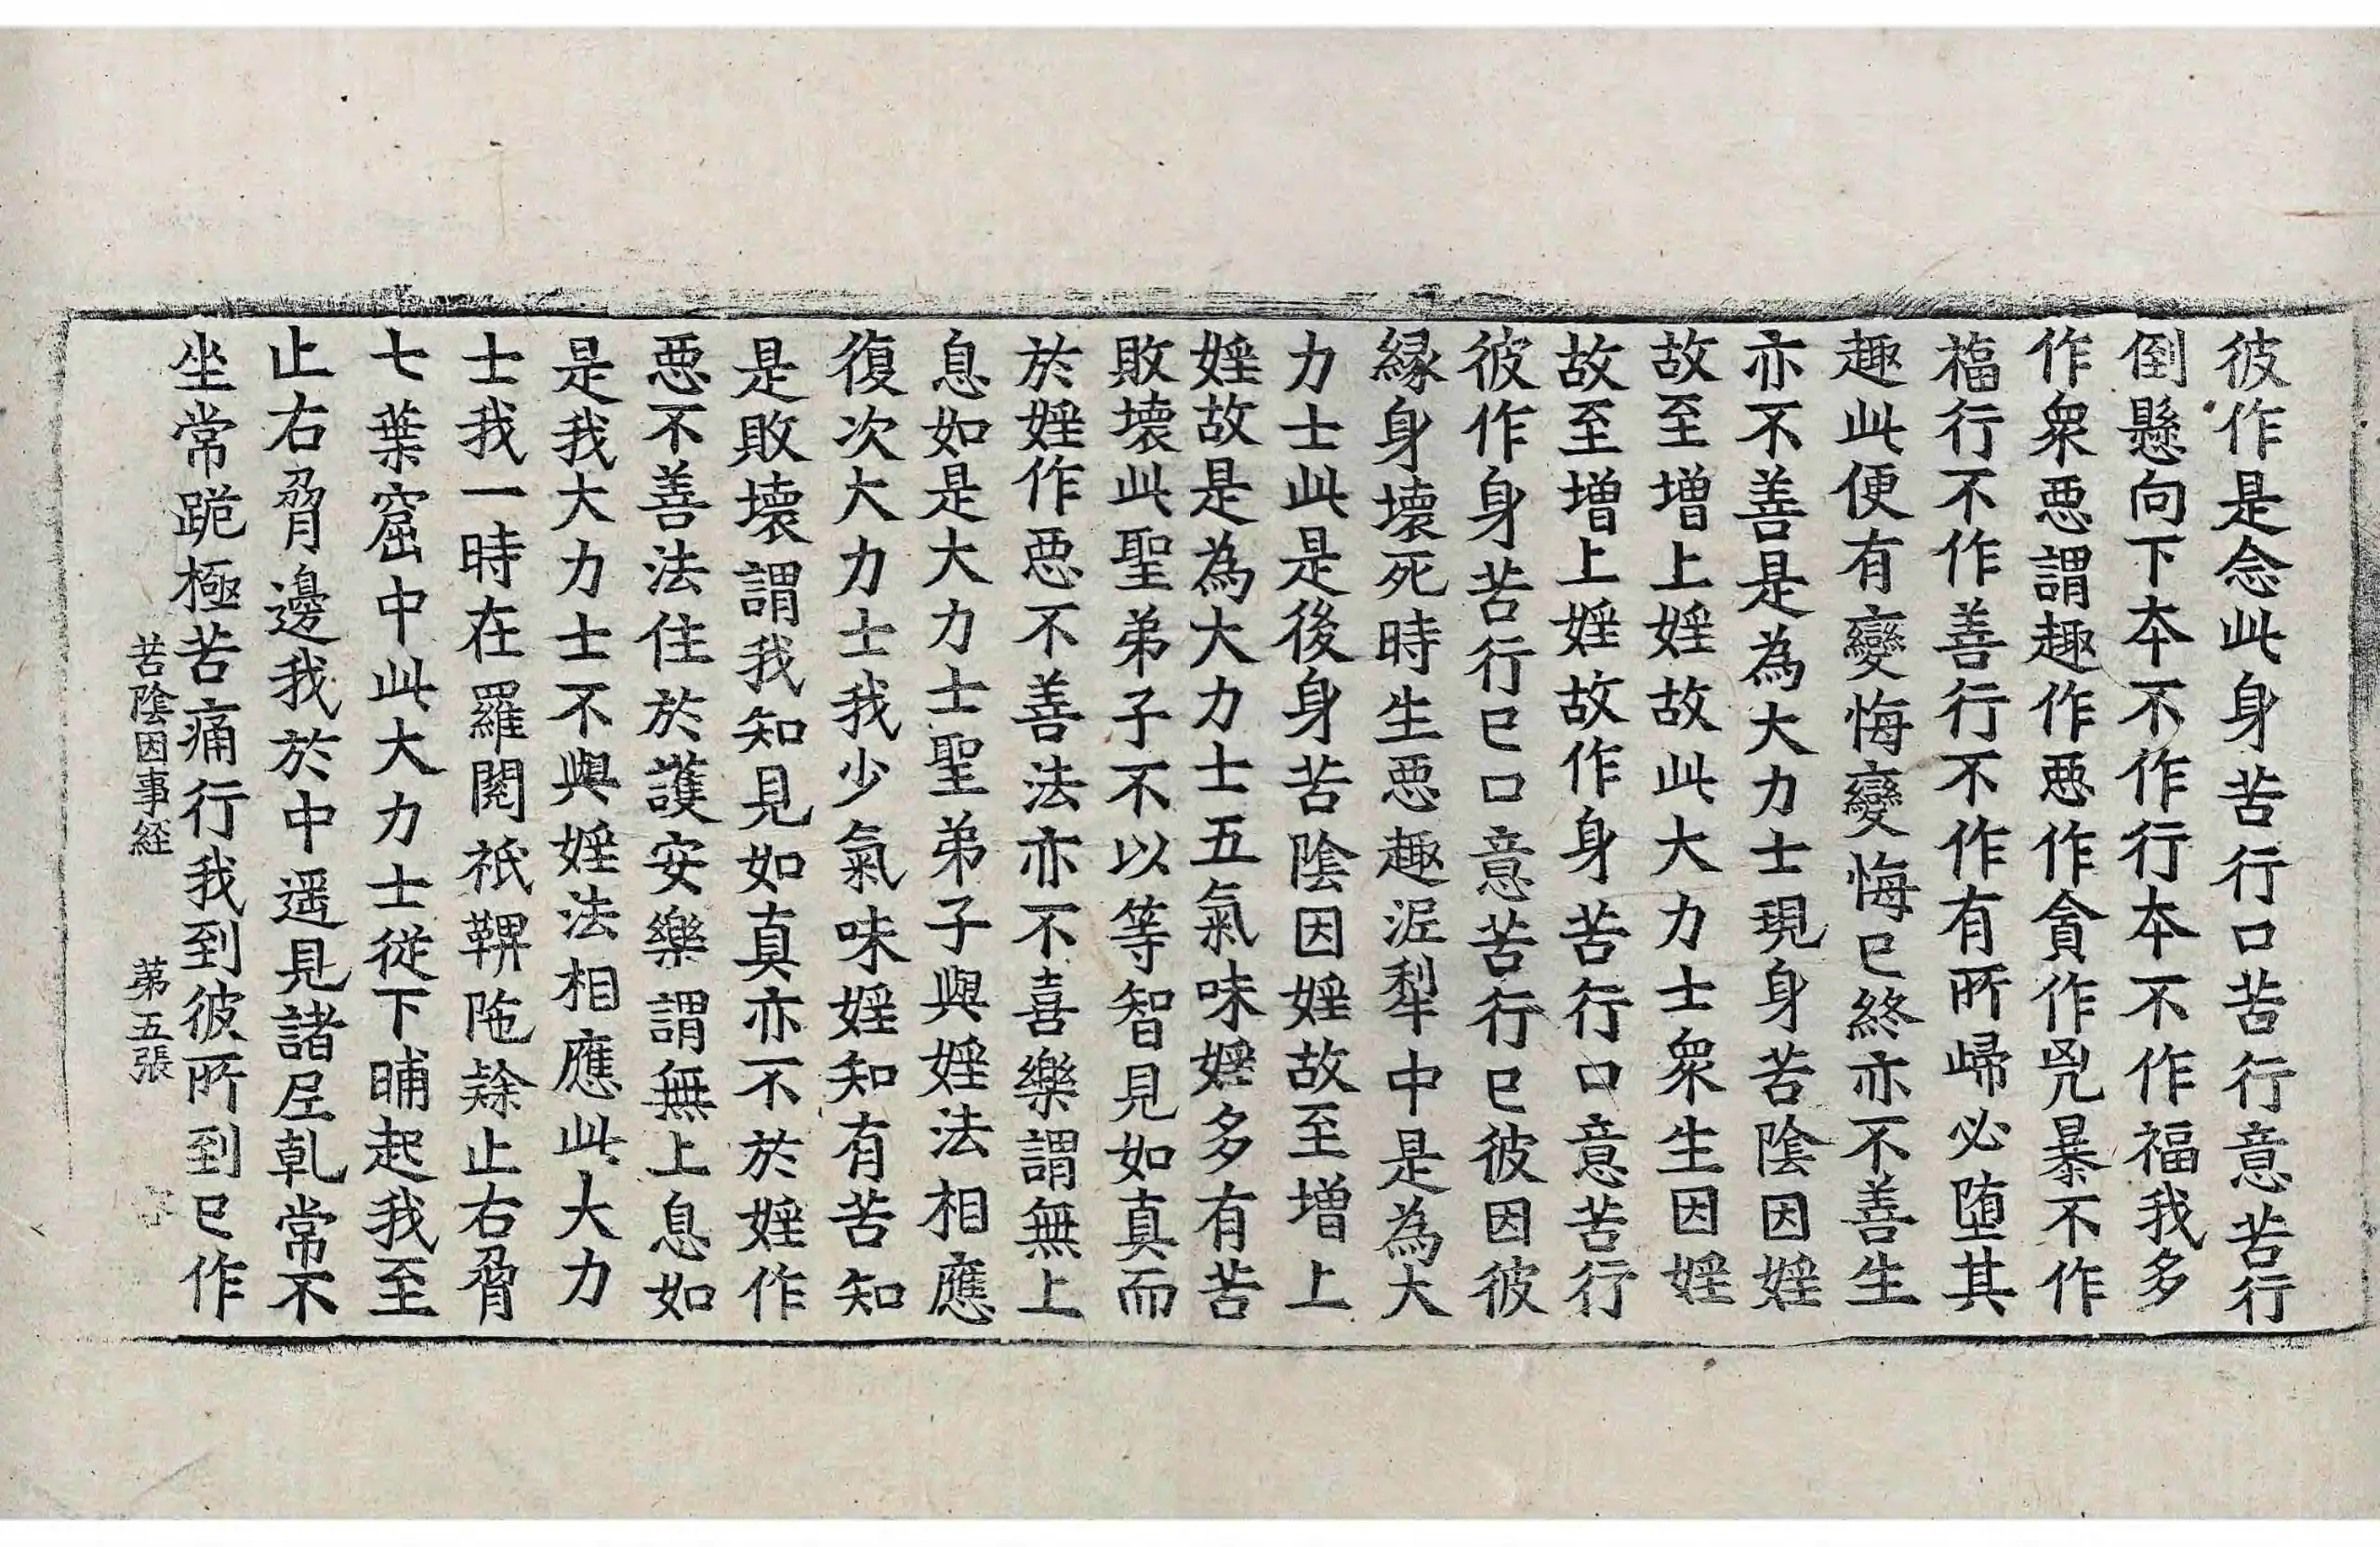 彼作是念此身苦行口苦行意苦行
倒懸向下本不作行本不作福我多
作衆惡謂趣作惡作貪作兇暴不作
福行不作善行不作有所歸必墮其
趣此便有變悔變悔已終亦不善生
亦不善是為大力士現身苦陰因婬
故至增上婬故此大力士衆生因婬
故至增上婬故作身苦行口意苦行
彼作身苦行已口意苦行已彼因彼
緣身壞死時生惡趣泥犁中是為大
力士此是後身苦陰因婬故至增上
婬故是為大力士五氣味婬多有苦
敗壞此聖弟子不以等智見如真而
於婬作惡不善法亦不喜樂謂無上
息如是大力士聖弟子與婬法相應
復次大力士我少氣味婬知有苦知
是敗壞謂我知見如真亦不於婬作
惡不善法住於護安樂謂無上息如
是我大力士不與婬法相應此大力
士我一時在羅閱祇鞞陁隸止右脅
七葉窟中此大力士從下晡起我至
止右脅邊我於中遥見諸尼乹常不
坐常跪極苦痛行我到彼所到已作
苦陰因事經 苐五張